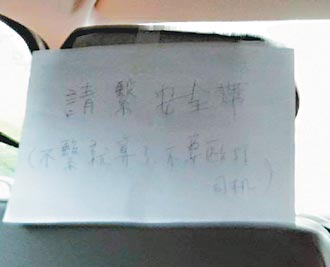 請繫安全帶
(不繫就算了,不要毆打
司机)